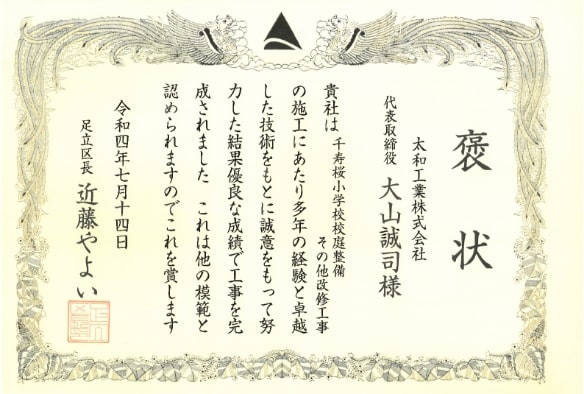 褒状
太和工業株式会社
代表取締役 大山誠司様
貴社は 千寿桜小学校校庭整備
その他改修工事
の施工にあたり多年の経験と卓越
した技術をもとに誠意をもって努
力した結果優良な成績で工事を完
成されました これは他の模範と
認められますのでこれを賞します
令和四年七月十四日
足立区長 近藤やよい